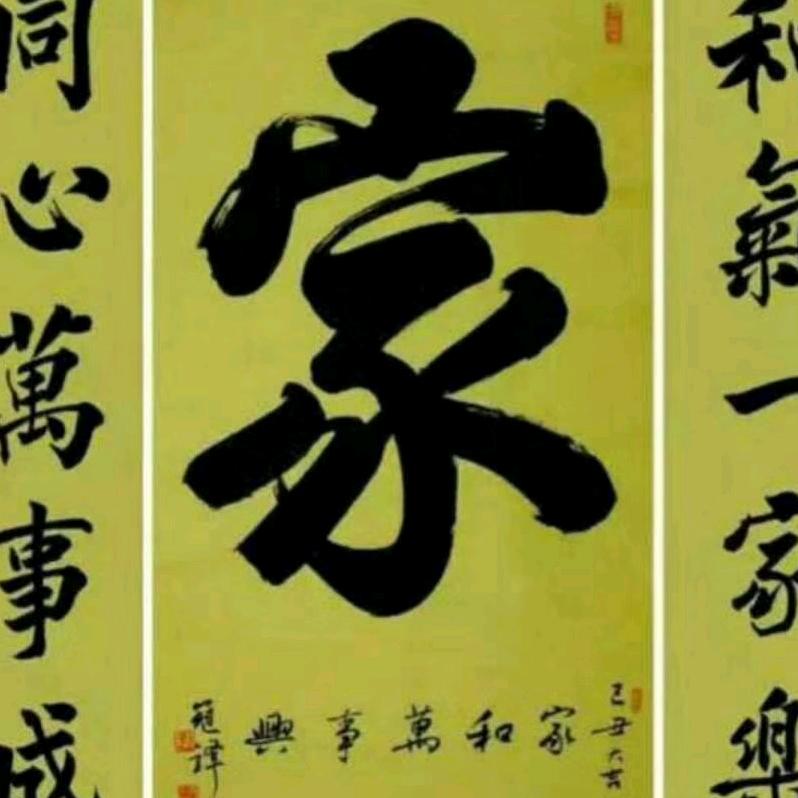 和氣一家樂
家
己丑大吉
家和萬事興
同心萬事成